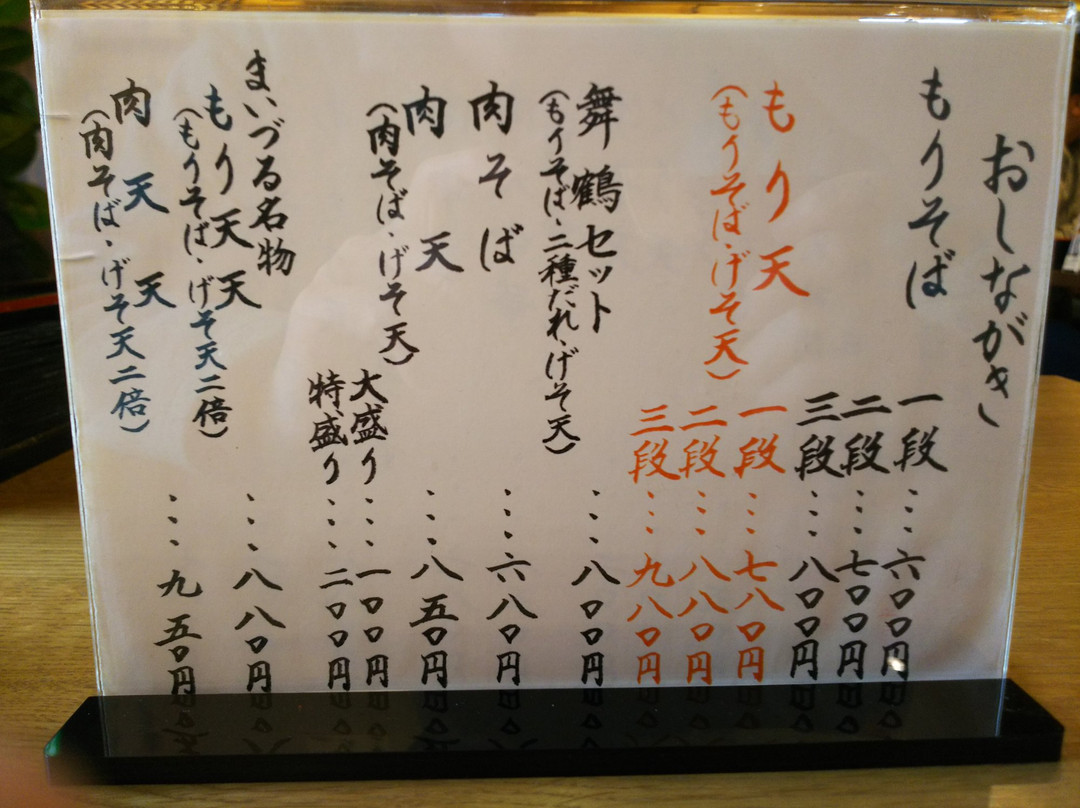 おしながき
もりそば
一段・・・六〇〇円
二段・・・七〇〇円
三段・・・八〇〇円
もり天
(もりそば・げそ天)
一段・・・七八〇円
二段・・・八八〇円
三段・・・九八〇円
舞鶴セット・・・八〇〇円
(もりそば・二種だれ・げそ天)
肉そば・・・六八〇円
肉天・・・八五〇円
(肉そば・げそ天)
大盛り・・・一〇〇円
特盛り・・・二〇〇円
まいづる名物
もり天天・・・八八〇円
(もりそば・げそ天二倍)
肉天天・・・九五〇円
(肉そば・げそ天二倍)